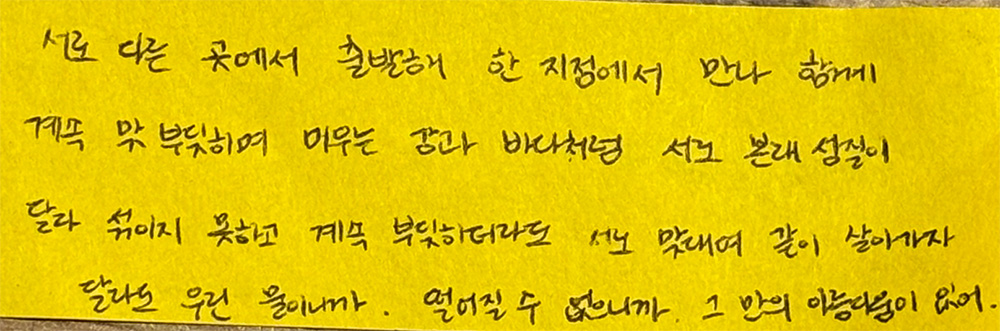 서로 다른 곳에서 출발해 한 지점에서 만나 함께
계속 맞 부딪히며 머무는 강과 바다처럼 서로 본래 성질이
달라 섞이지 못하고 계속 부딪히더라도 서로 맞대며 같이 살아가자
달라도 우린 물이니까. 떨어질 수 없으니까. 그 만의 아름다움이 있어.